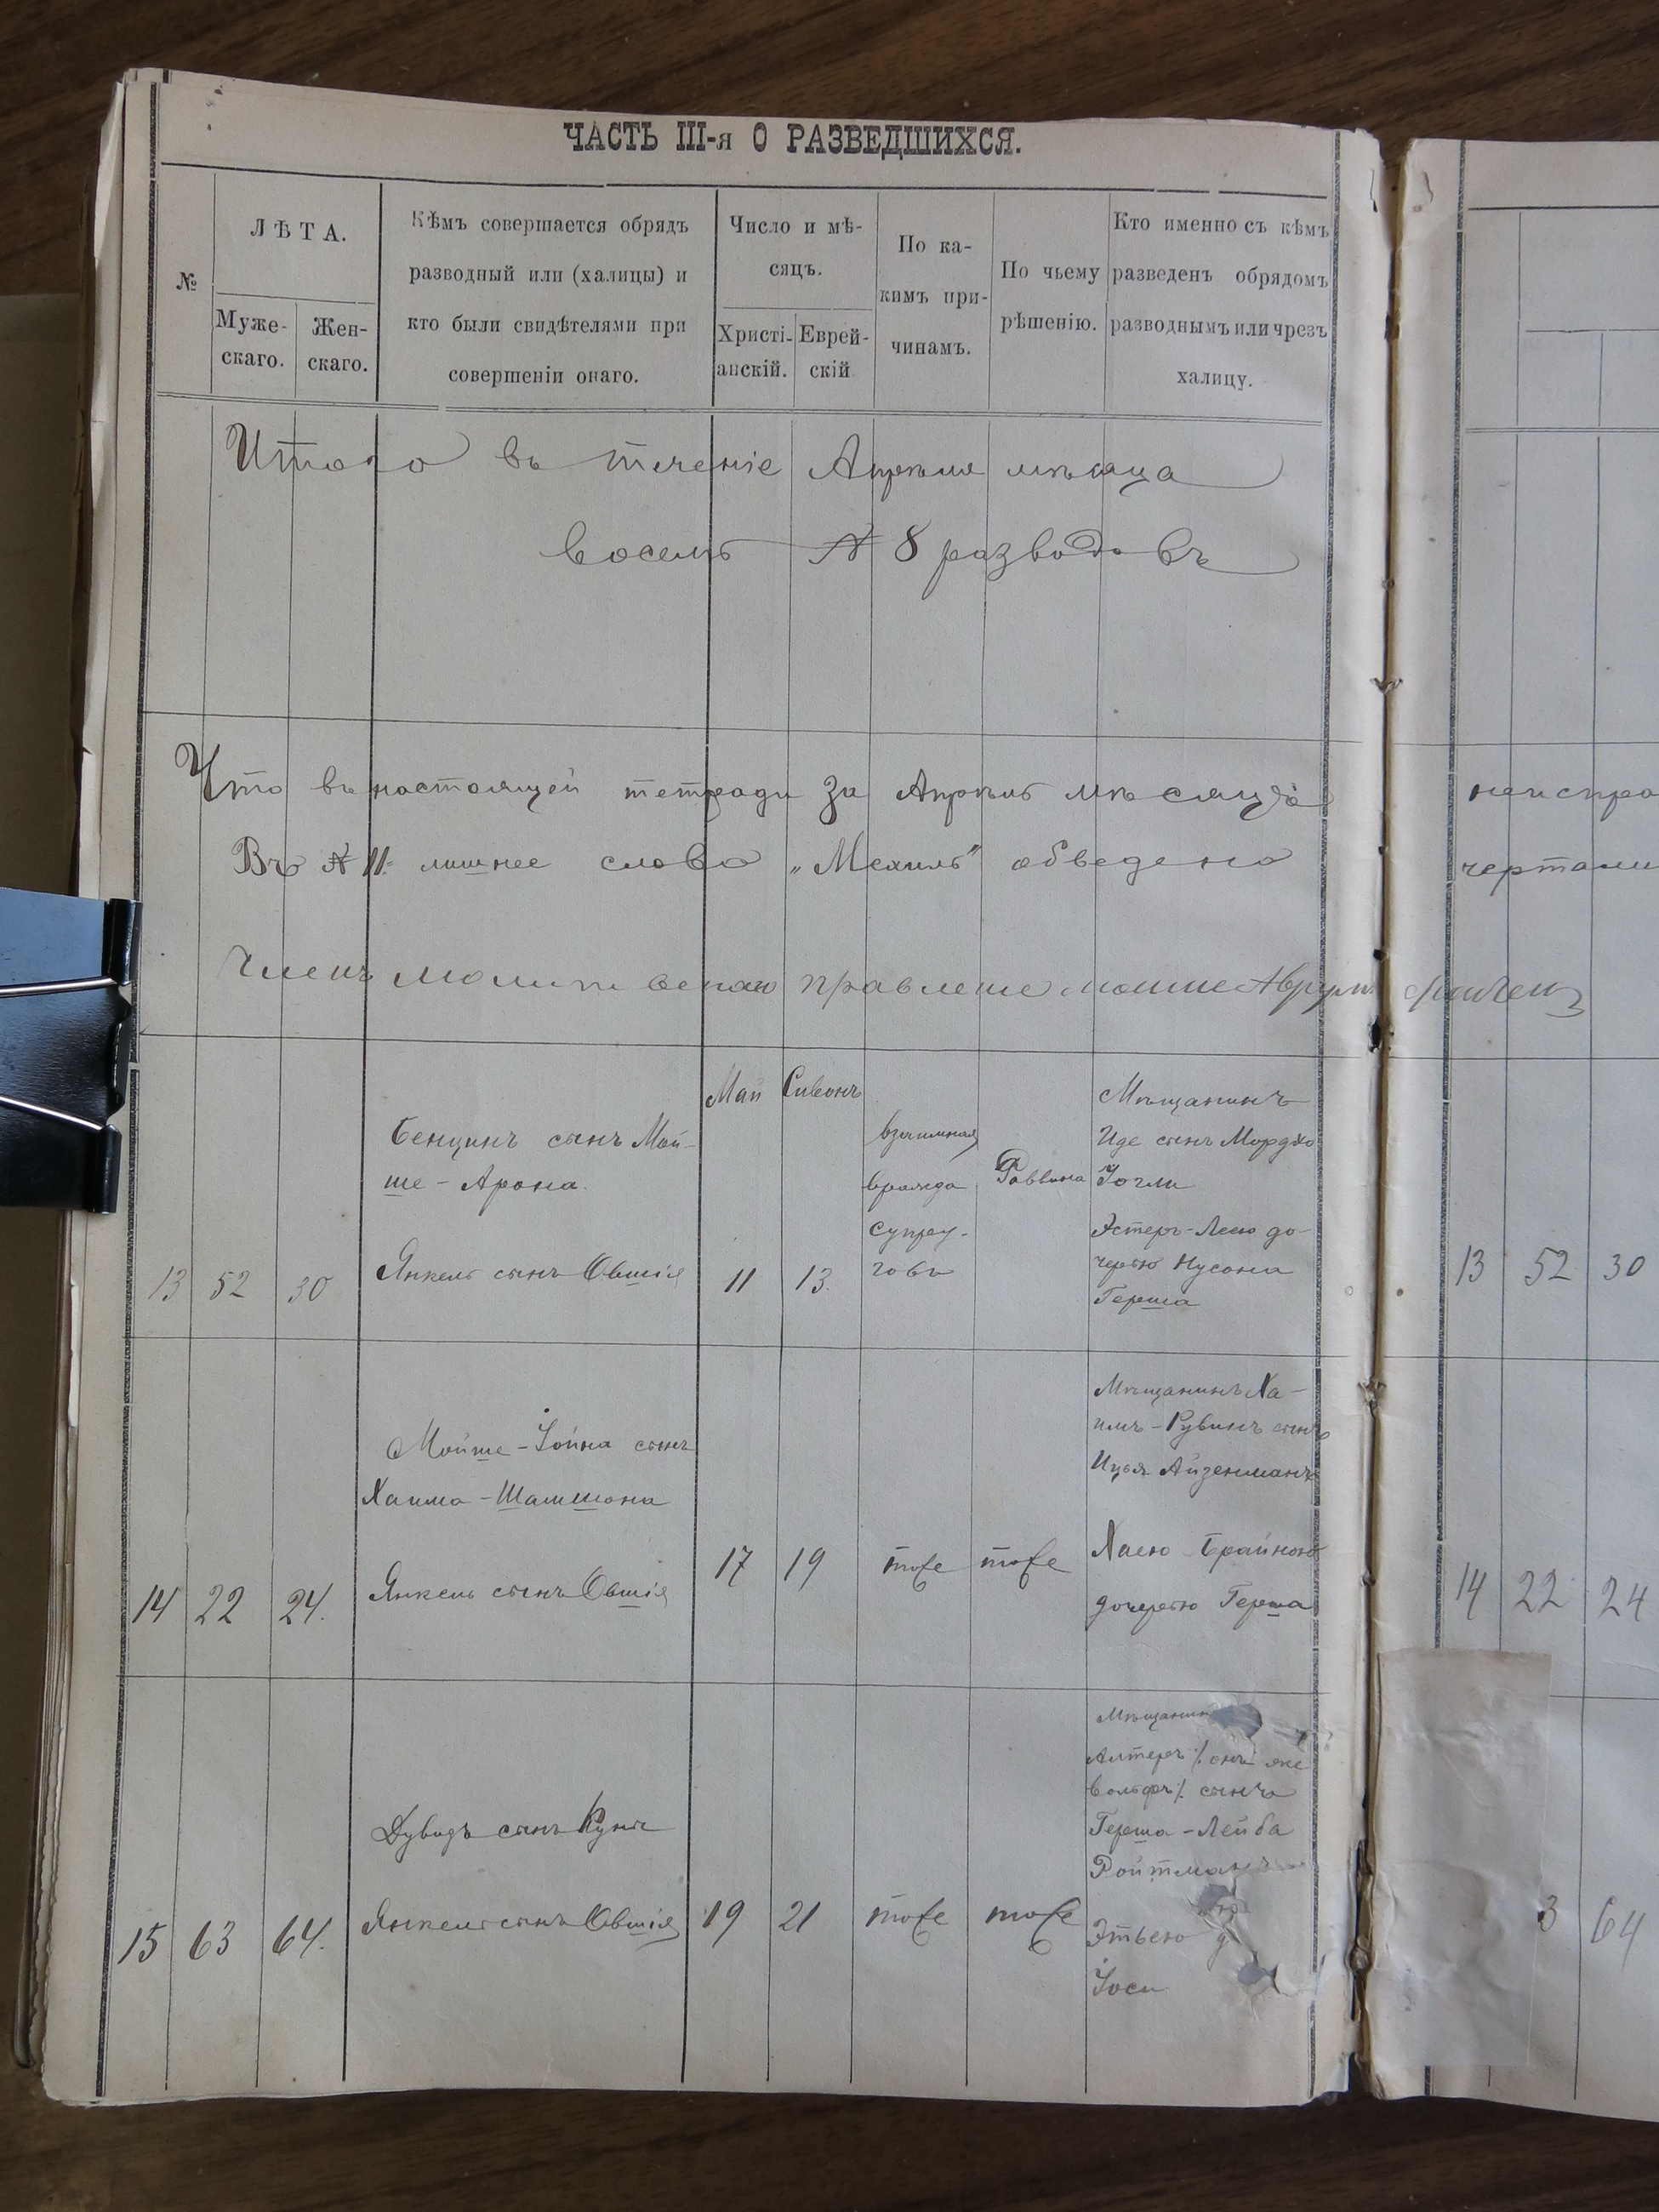 ЧАСТЬ III-я О РАЗВЕДШИХСЯ.
№
ЛѢТА.
Муже-
скаго.
Жен-
скаго.
Кѣмъ совершается обрядъ
разводный или (халицы) и
кто были свидѣтелями при
совершеніи онаго.
Число и мѣ-
сяцъ.
Христі-
анскій.
Еврей-
скій
По ка-
кимъ при-
чинамъ.
По чьему
рѣшенію.
Кто именно съ кѣмъ
разведенъ обрядомъ
разводнымъ или чрезъ
халицу.
Итого въ теченіе Апрѣля мѣсяца
восемь № 8 разводовъ
Что въ настоящей тетради за Апрѣль мѣсяцъ
Въ № 11 лишнее слово „Мехиль" обведено
Членъ молитвенаго правление Мошке Аврум
Май Сивонъ
Бенцинъ сынъ Мой-
ше-Арона.
Янкель сынъ Овшія
13 52 30
11 13.
взаимная
вражда
супру-
говъ
Раввина
Мѣщанинъ
Иде сынъ Мордко
Эстеръ-Лею до
черью Нусона
Герша
Мойше-Іойна сынъ
Хаима-Шамшона
Янкель сынъ Овшія
14 22 24.
17 19 тоже тоже
Мѣщанинъ Ха-
имъ-Рувинъ сынъ
Ицъя Айзенманъ
Хаею Брайною
дочерью Герша
Дувидъ сынъ Куна
Янкель сынъ Овшія
15 63 64.
19 21 тоже тоже
Мѣщанин
Алтеръ /. онъ же
Вольфъ /. сынъ
Герша-Лейба
Ройтманъ
Этьею
Іоси
неиспра
чертами
13 52 30
14 22 24
3 64